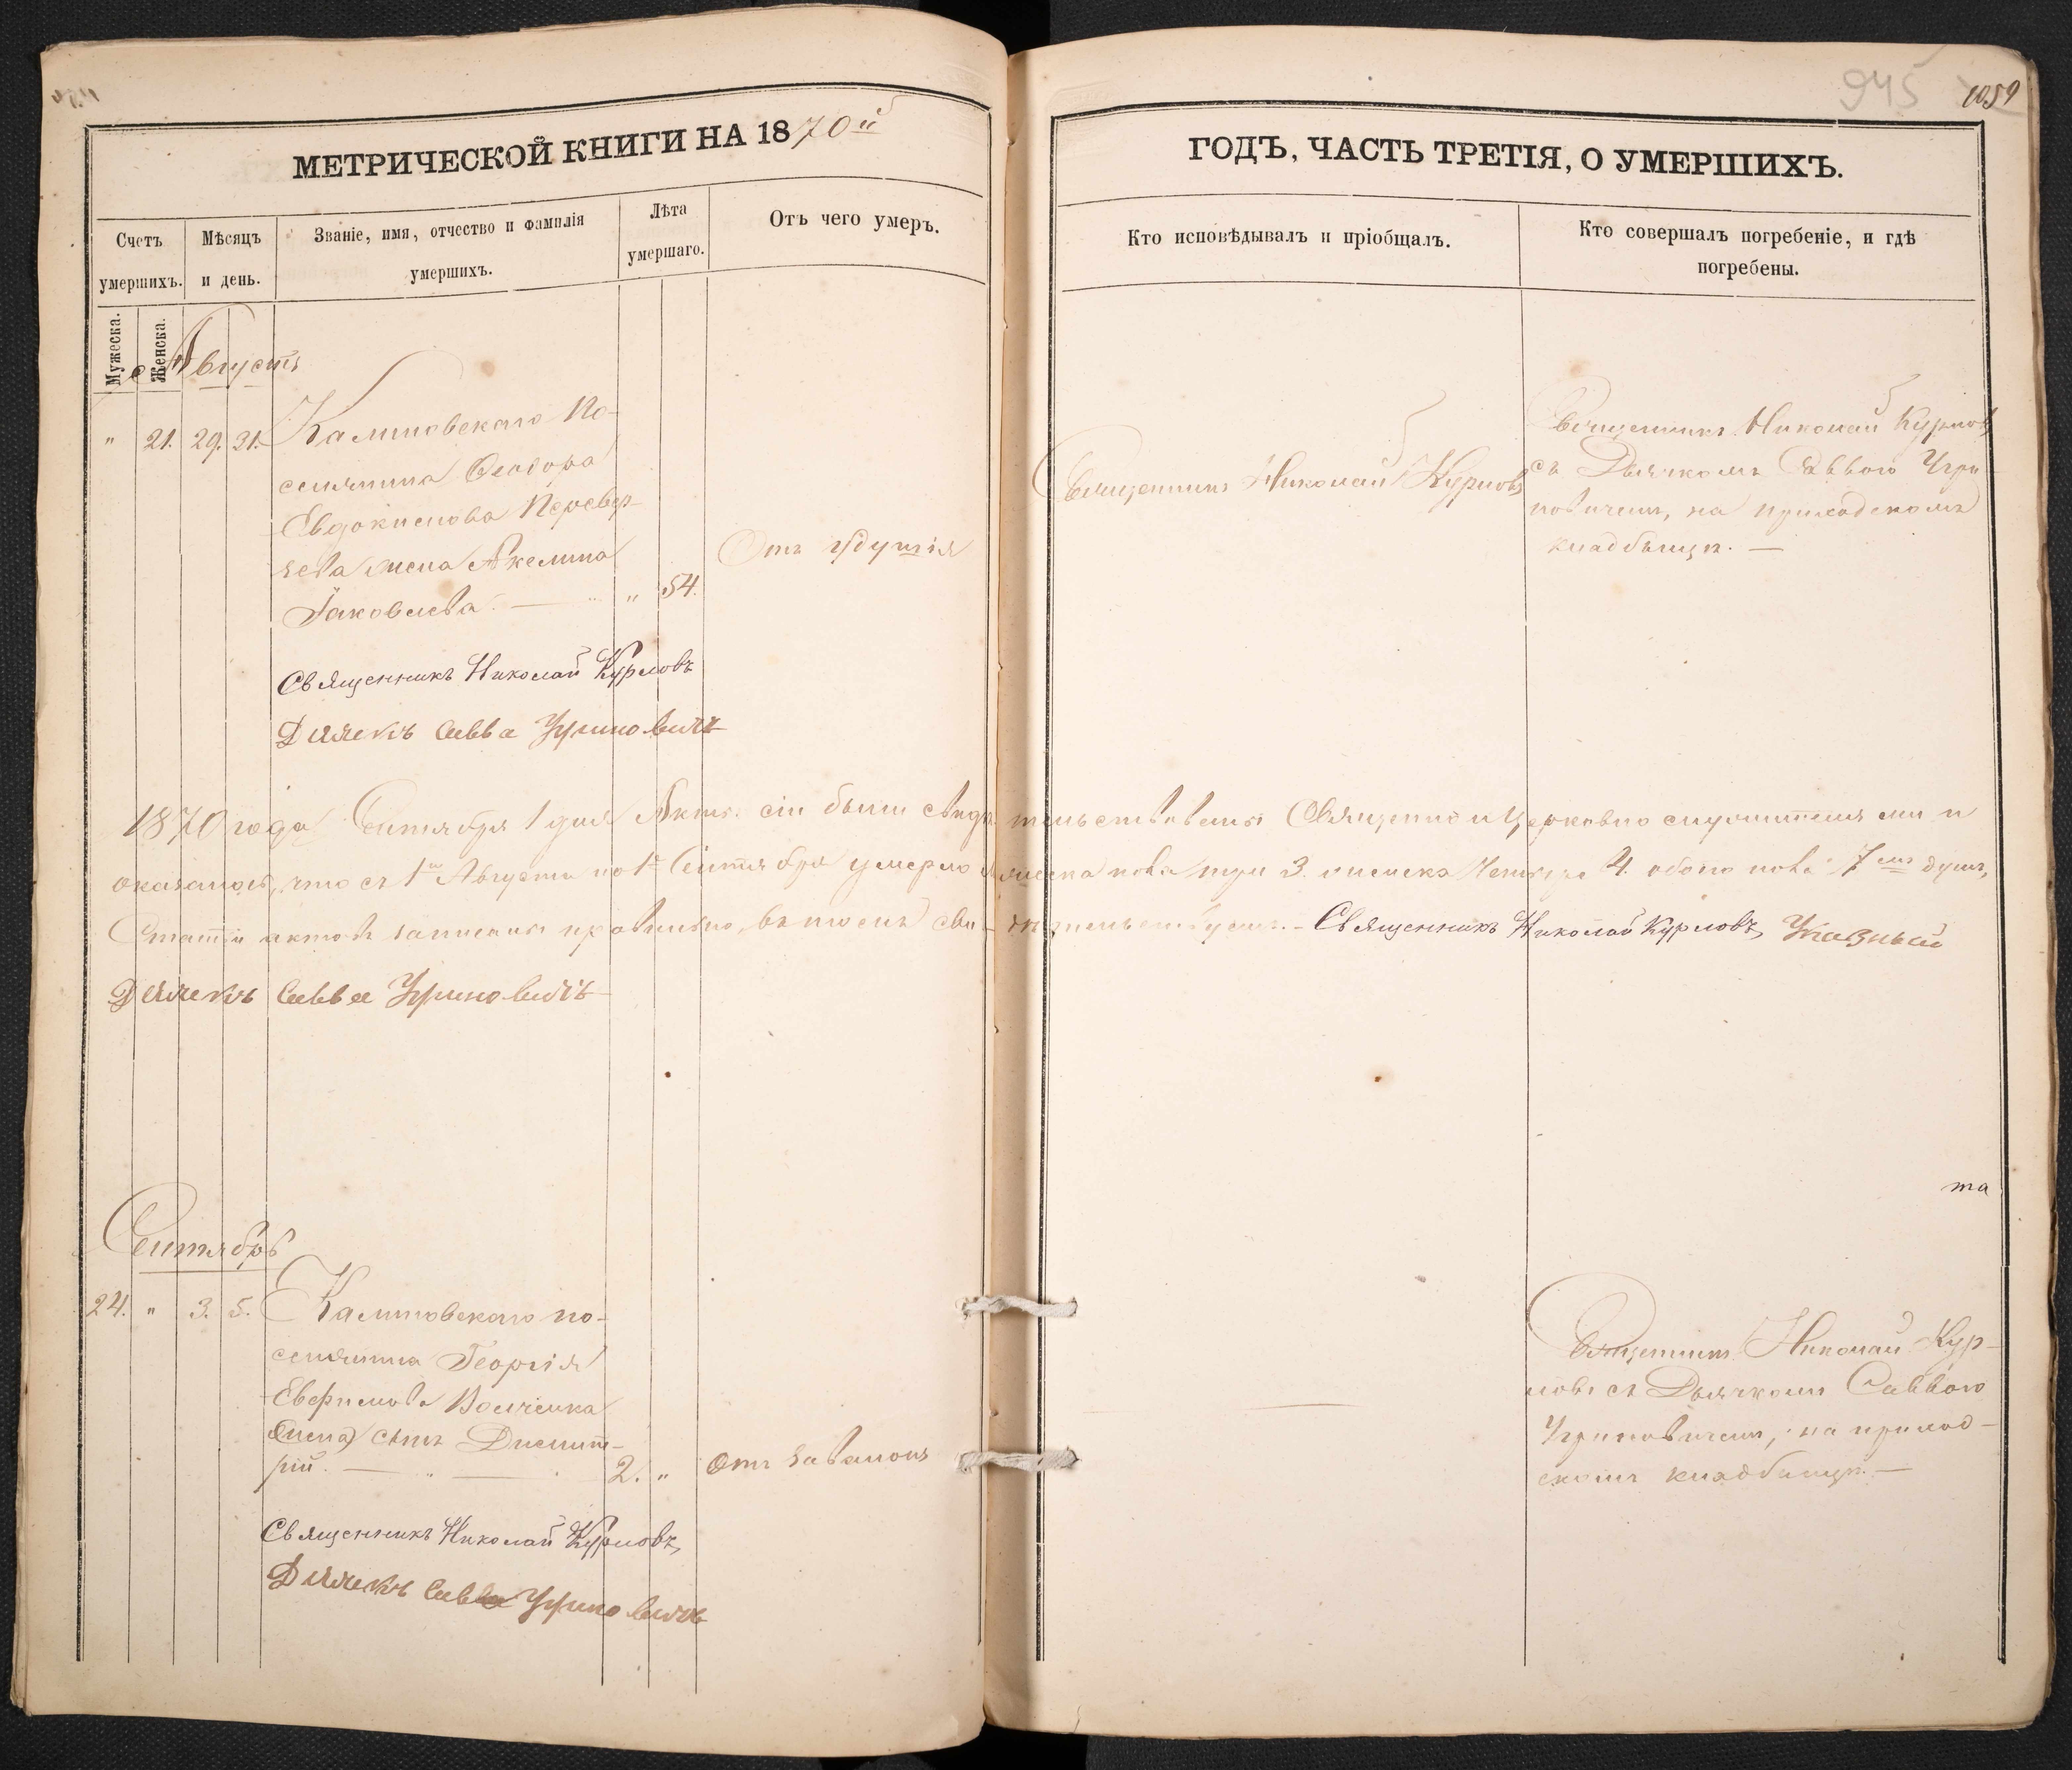 945 1059
МЕТРИЧЕСКОЙ КНИГИ НА 1870й
ГОДЪ, ЧАСТЬ ТРЕТІЯ, О УМЕРШИХЪ.
Счетъ умершихъ.
Мужеска.
Женска.
Мѣсяцъ и день.
Званіе, имя, отчество и фамилія умершихъ.
Лѣта умершаго.
Отъ чего умеръ.
Кто исповѣдывалъ и пріобщалъ.
Кто совершалъ погребеніе, и гдѣ погребены.
Августъ
" 21. 29. 31. Калиновскаго по-
селянина Ѳеодора
Евдокимова Перевер-
зева жена Акелина
Іаковлева. — " 54.
Отъ удушія
Священникъ Николай Курловъ
Священникъ Николай Курловъ
съ Дьячкомъ Саввою Угри-
новичемъ, на приходскомъ
кладбищѣ. —
Священникъ Николай Курловъ
Дьячекъ Савва Угриновичъ
1870 года Сентября 1 дня Акты сіи были свидѣтельствованы Священно и Церковно служителями и
оказалось, что съ 1го Августа по 1е Сентября умерло мужеска пола три 3. женска четыре 4. обоего пола 7мь душъ,
Статьи актовъ записаны правильно, въ томъ свидѣтельствуемъ. – Священникъ Николай Курловъ, Указный
Дьячекъ Савва Угриновичъ
та
Сентябрь
24. " 3. 5. Калиновскаго по-
селянина Георгія
Евфимова Волченка
сынъ Димит-
рій. — " — 2. "
Отъ заваловъ
Священникъ Николай Кур-
ловъ съ Дьячкомъ Саввою
Угриновичемъ, на приход-
скомъ кладбищѣ. —
Священникъ Николай Курловъ,
Дьячекъ Савва Угриновичъ